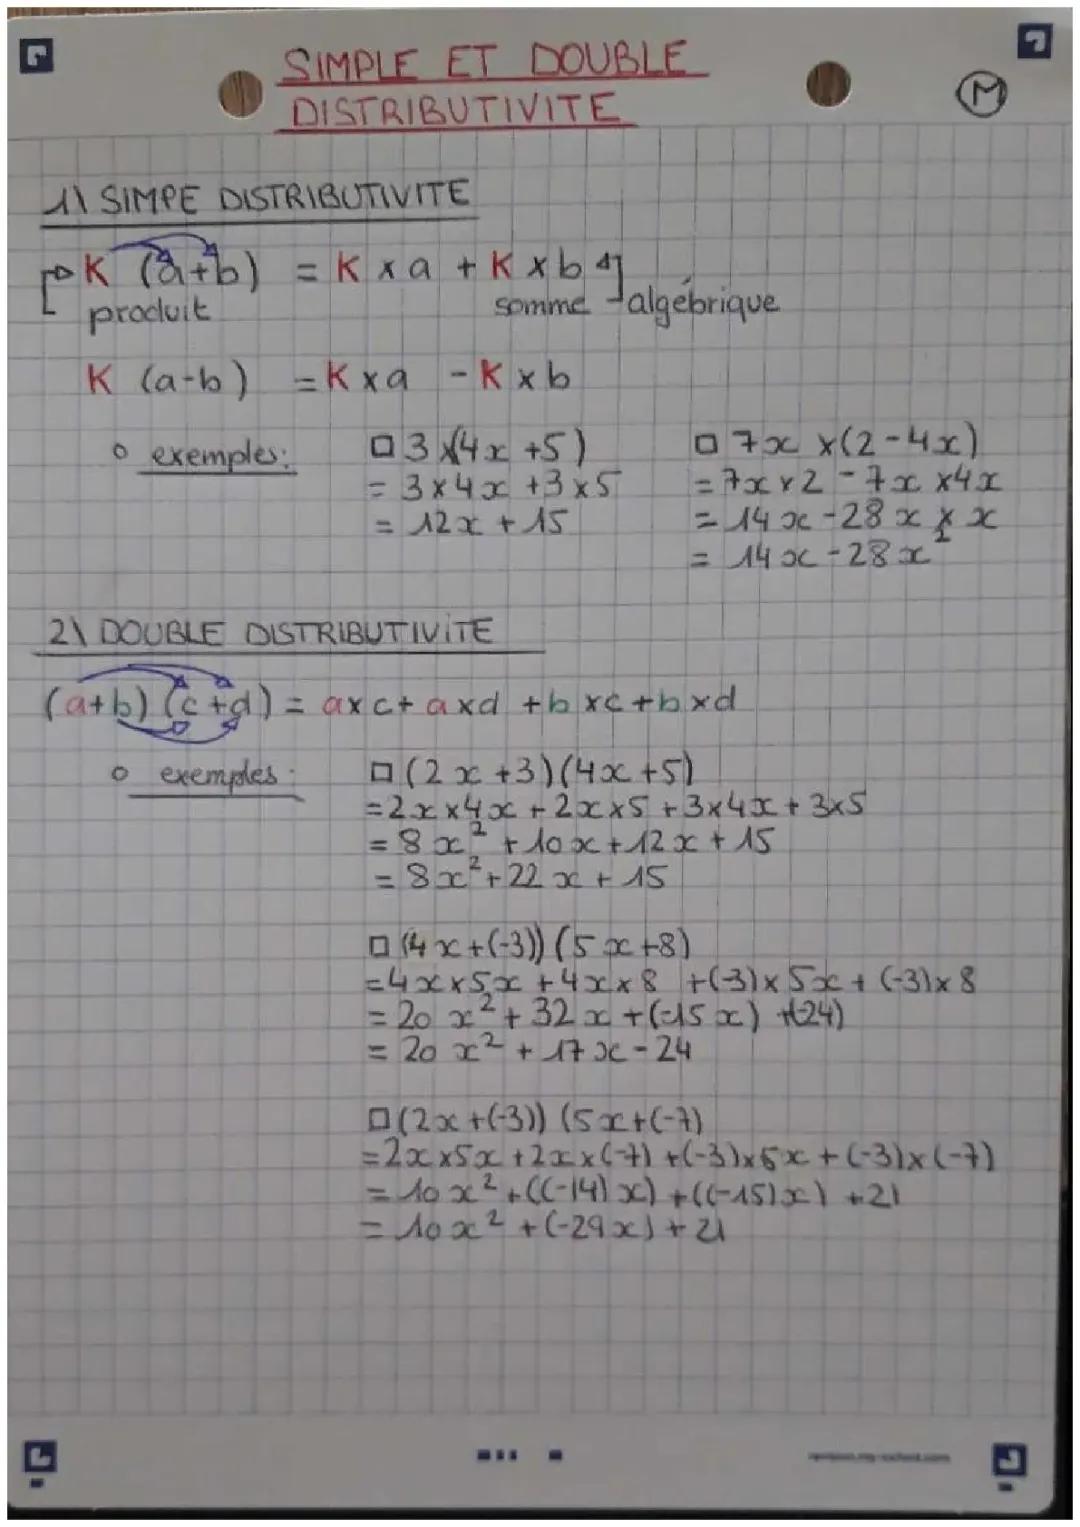 SIMPLE ET DOUBLE
DISTRIBUTIVITE
M
1\ SIMPE DISTRIBUTIVITE
K (a+b) = K x a + K x b
produit somme algébrique
K (a-b) = K x a - K x b
exemples:
□ 3 x(4x +5)
= 3x4x +3x5
= 12x + 15
□ 7x x(2-4x)
= 7x x 2 - 7x x4x
= 14x - 28x x x
= 14x - 28x²
2\ DOUBLE DISTRIBUTIVITE
(a+b) (c+d) = axc + axd + bxc + bxd
exemples:
□ (2x +3)(4x+5)
= 2x x4x + 2x x5 + 3x4x + 3x5
= 8x² + 10x + 12x + 15
= 8x² + 22x + 15
□ (4x+(-3)) (5x+8)
= 4x x5x + 4x x 8 +(-3)x 5x + (-3)x 8
= 20x² + 32x +(-15x) +(-24)
= 20x² + 17x - 24
□ (2x+(-3)) (5x+(-7)
= 2x x5x + 2x x(-7) +(-3)x5x + (-3)x(-7)
= 10x² + ((-14)x) + ((-15)x) + 21
= 10x² + (-29x) + 21